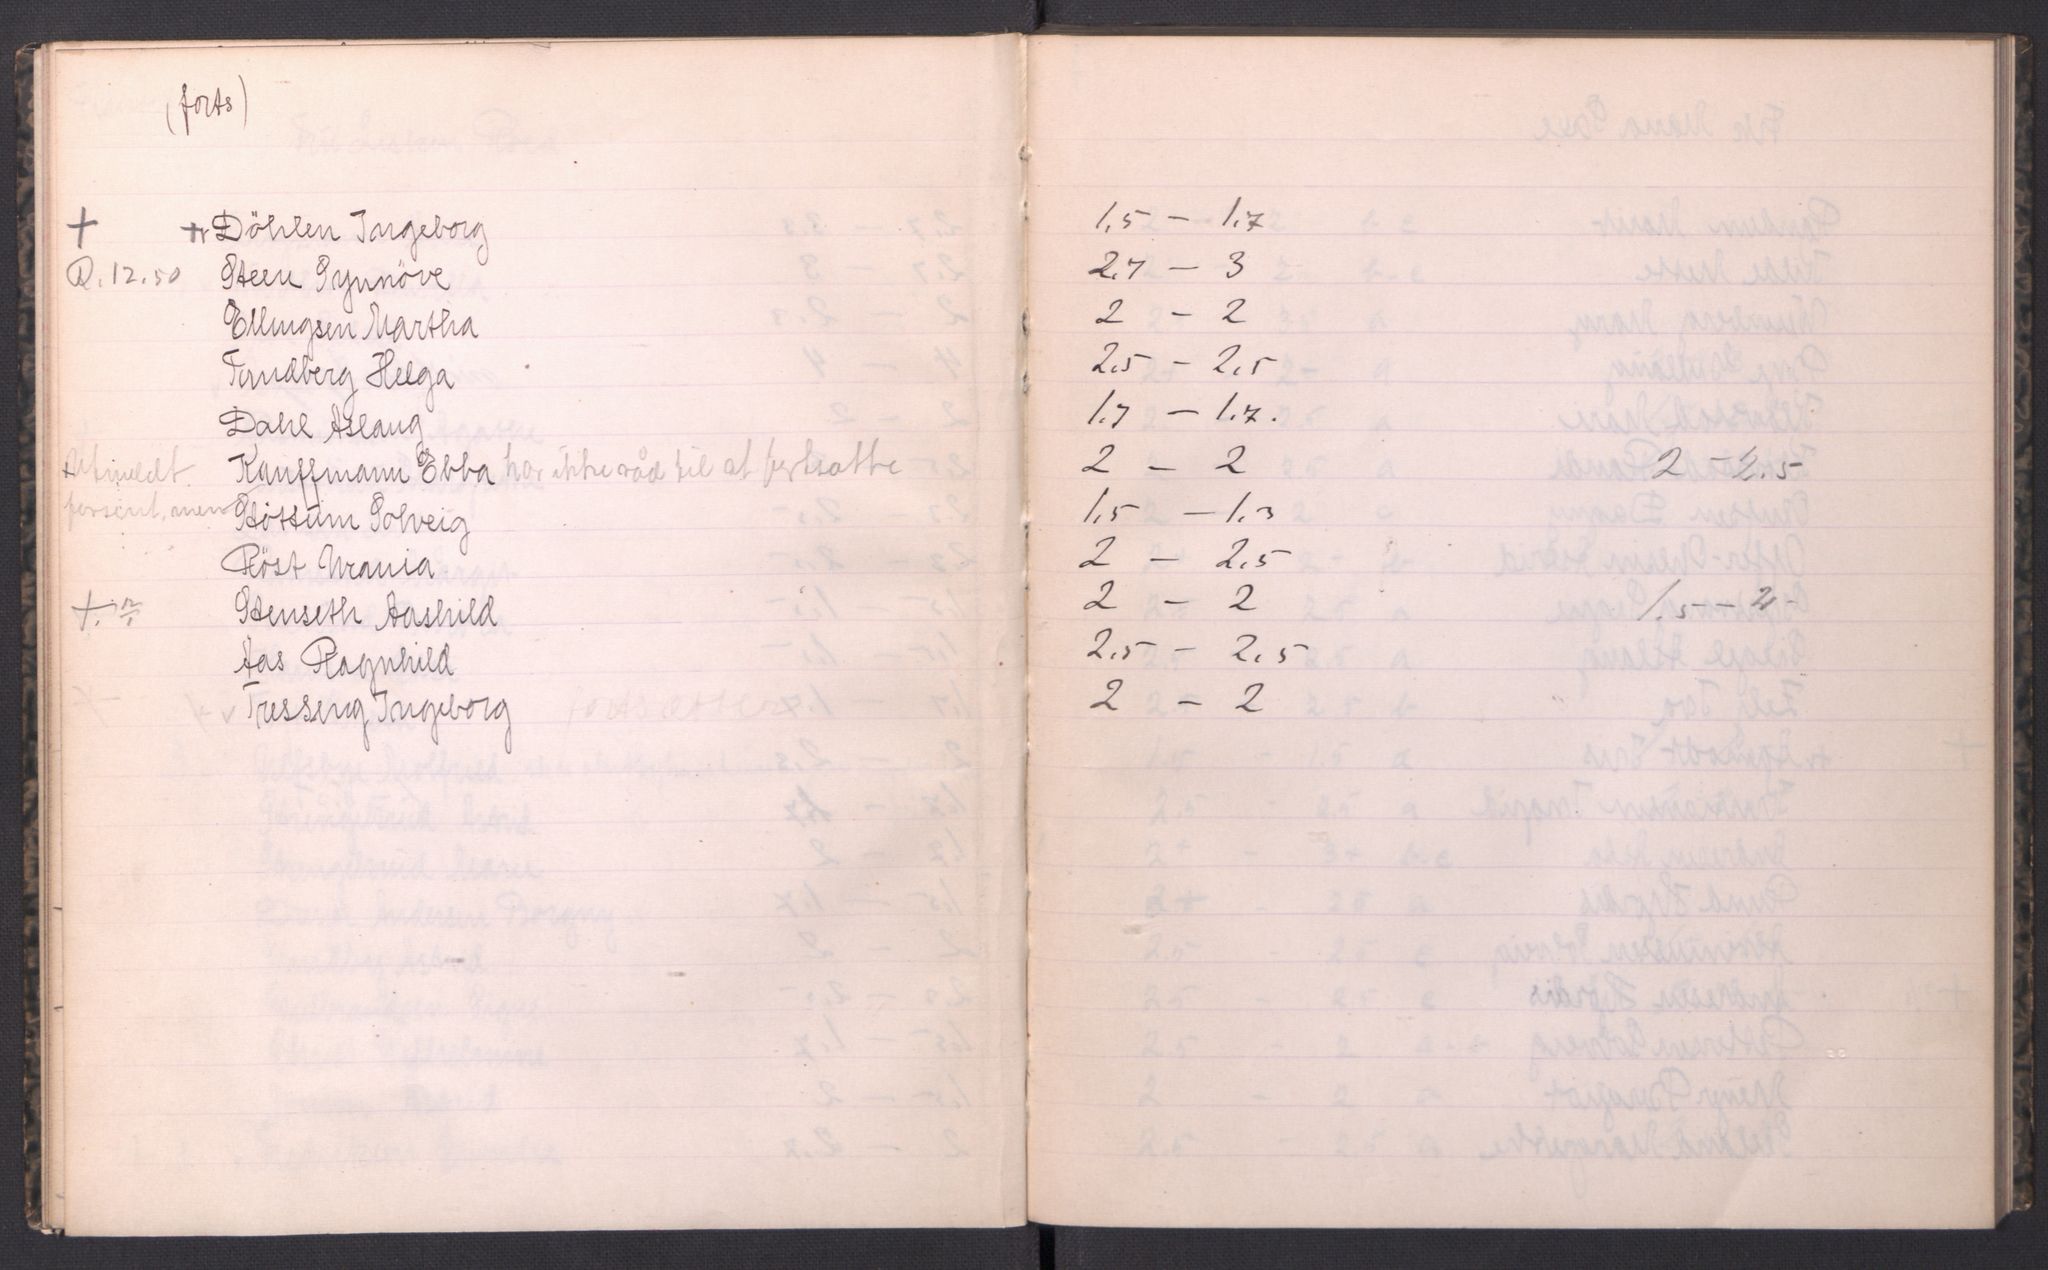 (forts)
+ Döhlen Ingeborg 1,5 – 1,7
R. 12.50 Steen Synnöve 2,7 – 3
Ellingsen Martha 2 – 2
Tandberg Helga 2,5 – 2,5
Dahl Aslaug 1,7 – 1,7.
Utmeldt. Kauffmann Ebba har ikke råd til at fortsætte 2 – 2 2 – 2.5
forsent, men Stöttum Solveig 1,5 – 1,3
Röst Urania 2 – 2,5
+ Stenseth Aashild 2 – 2 1,5 – 2
Aas Ragnhild 2,5 – 2,5
Tresseng Ingeborg fortsætter 2 – 2